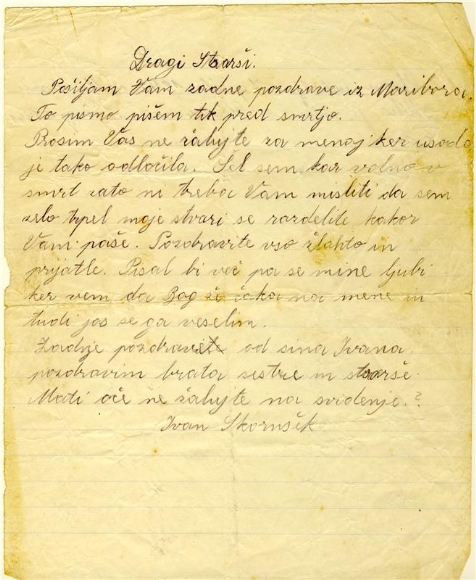 Dragi Starši.
Pošiljam Vam zadne pozdrave iz Maribora.
To pismo pišem tik pred smrtjo.
Prosim Vas ne žalujte za menoj ker usoda
je tako odločila. Šel sem kar volno v
smrt zato ni treba Vam misliti da sem
zelo trpel moje stvari se razdelite kakor
Vam paše. Pozdravite vso žlahto in
prjatle. Pisal bi več pa se mi ne ljubi
ker vem da Bog že čaka na mene in
tudi jas se ga veselim.
Zadnje pozdrave od sina Ivana
pozdravim brata sestre in starše.
Mati oče ne žalujte na svidenje.
Ivan Skornšek